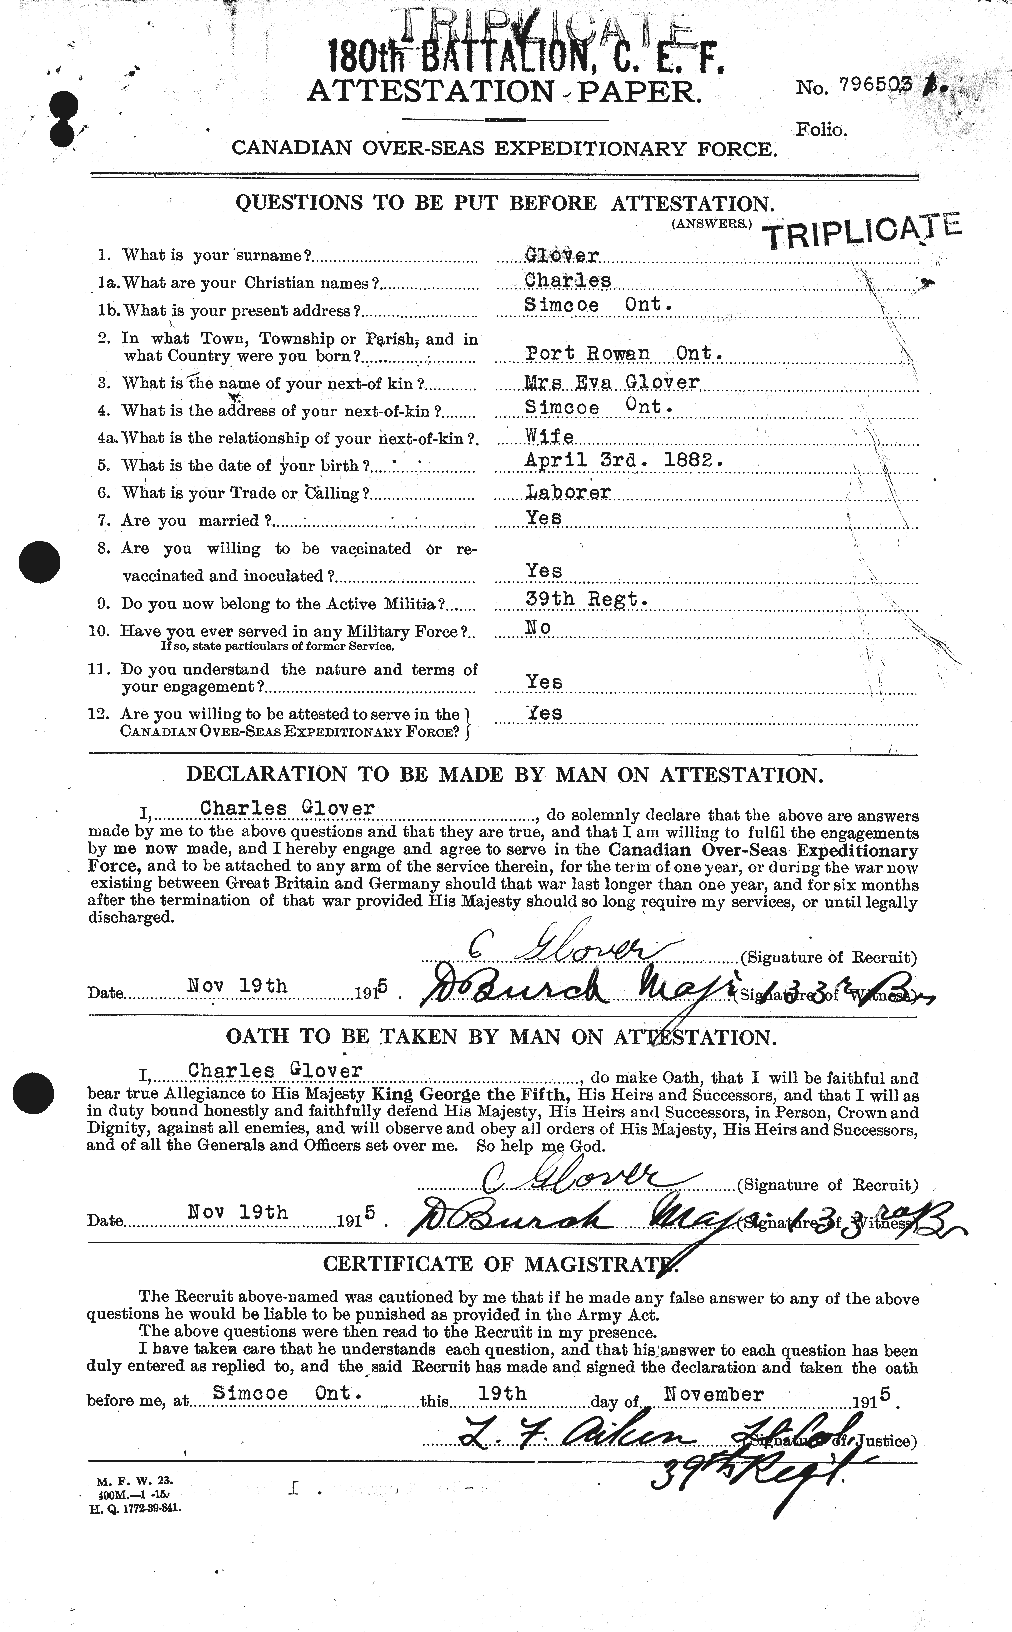 TRIPLICATE
180th BATTALION, C. E. F.
ATTESTATION PAPER.
No. 796503
Folio.
CANADIAN OVER-SEAS EXPEDITIONARY FORCE.
QUESTIONS TO BE PUT BEFORE ATTESTATION.
(ANSWERS.)
TRIPLICATE
1. What is your surname? Glover
1a. What are your Christian names? Charles
1b. What is your present address? Simcoe Ont.
2. In what Town, Township or Parish, and in
what Country were you born? Port Rowan Ont.
3. What is the name of your next-of kin? Mrs Eva Glover
4. What is the address of your next-of-kin? Simcoe Ont.
4a. What is the relationship of your next-of-kin? Wife
5. What is the date of your birth? April 3rd. 1882.
6. What is your Trade or Calling? Laborer
7. Are you married? Yes
8. Are you willing to be vaccinated or re-
vaccinated and inoculated? Yes
9. Do you now belong to the Active Militia? 39th Regt.
10. Have you ever served in any Military Force? No
If so, state particulars of former Service.
11. Do you understand the nature and terms of
your engagement? Yes
12. Are you willing to be attested to serve in the Yes
CANADIAN OVER-SEAS EXPEDITIONARY FORCE?
DECLARATION TO BE MADE BY MAN ON ATTESTATION.
I, Charles Glover, do solemnly declare that the above are answers
made by me to the above questions and that they are true, and that I am willing to fulfil the engagements
by me now made, and I hereby engage and agree to serve in the Canadian Over-Seas Expeditionary
Force, and to be attached to any arm of the service therein, for the term of one year, or during the war now
existing between Great Britain and Germany should that war last longer than one year, and for six months
after the termination of that war provided His Majesty should so long require my services, or until legally
discharged.
C Glover (Signature of Recruit)
Date Nov 19th 1915. D Burch Maj. 133rd Bn (Signature of Witness)
OATH TO BE TAKEN BY MAN ON ATTESTATION.
I, Charles Glover, do make Oath, that I will be faithful and
bear true Allegiance to His Majesty King George the Fifth, His Heirs and Successors, and that I will as
in duty bound honestly and faithfully defend His Majesty, His Heirs and Successors, in Person, Crown and
Dignity, against all enemies, and will observe and obey all orders of His Majesty, His Heirs and Successors,
and of all the Generals and Officers set over me. So help me God.
C Glover (Signature of Recruit)
Date Nov 19th 1915. D Burch Maj. 133rd Bn (Signature of Witness)
CERTIFICATE OF MAGISTRATE.
The Recruit above-named was cautioned by me that if he made any false answer to any of the above
questions he would be liable to be punished as provided in the Army Act.
The above questions were then read to the Recruit in my presence.
I have taken care that he understands each question, and that his answer to each question has been
duly entered as replied to, and the said Recruit has made and signed the declaration and taken the oath
before me, at Simcoe Ont. this 19th day of November 1915.
L. F. Aiken Lt Col. (Signature of Justice)
39th Reg't.
M. F. W. 23.
400M.—1-15.
H. Q. 1772-39-841.